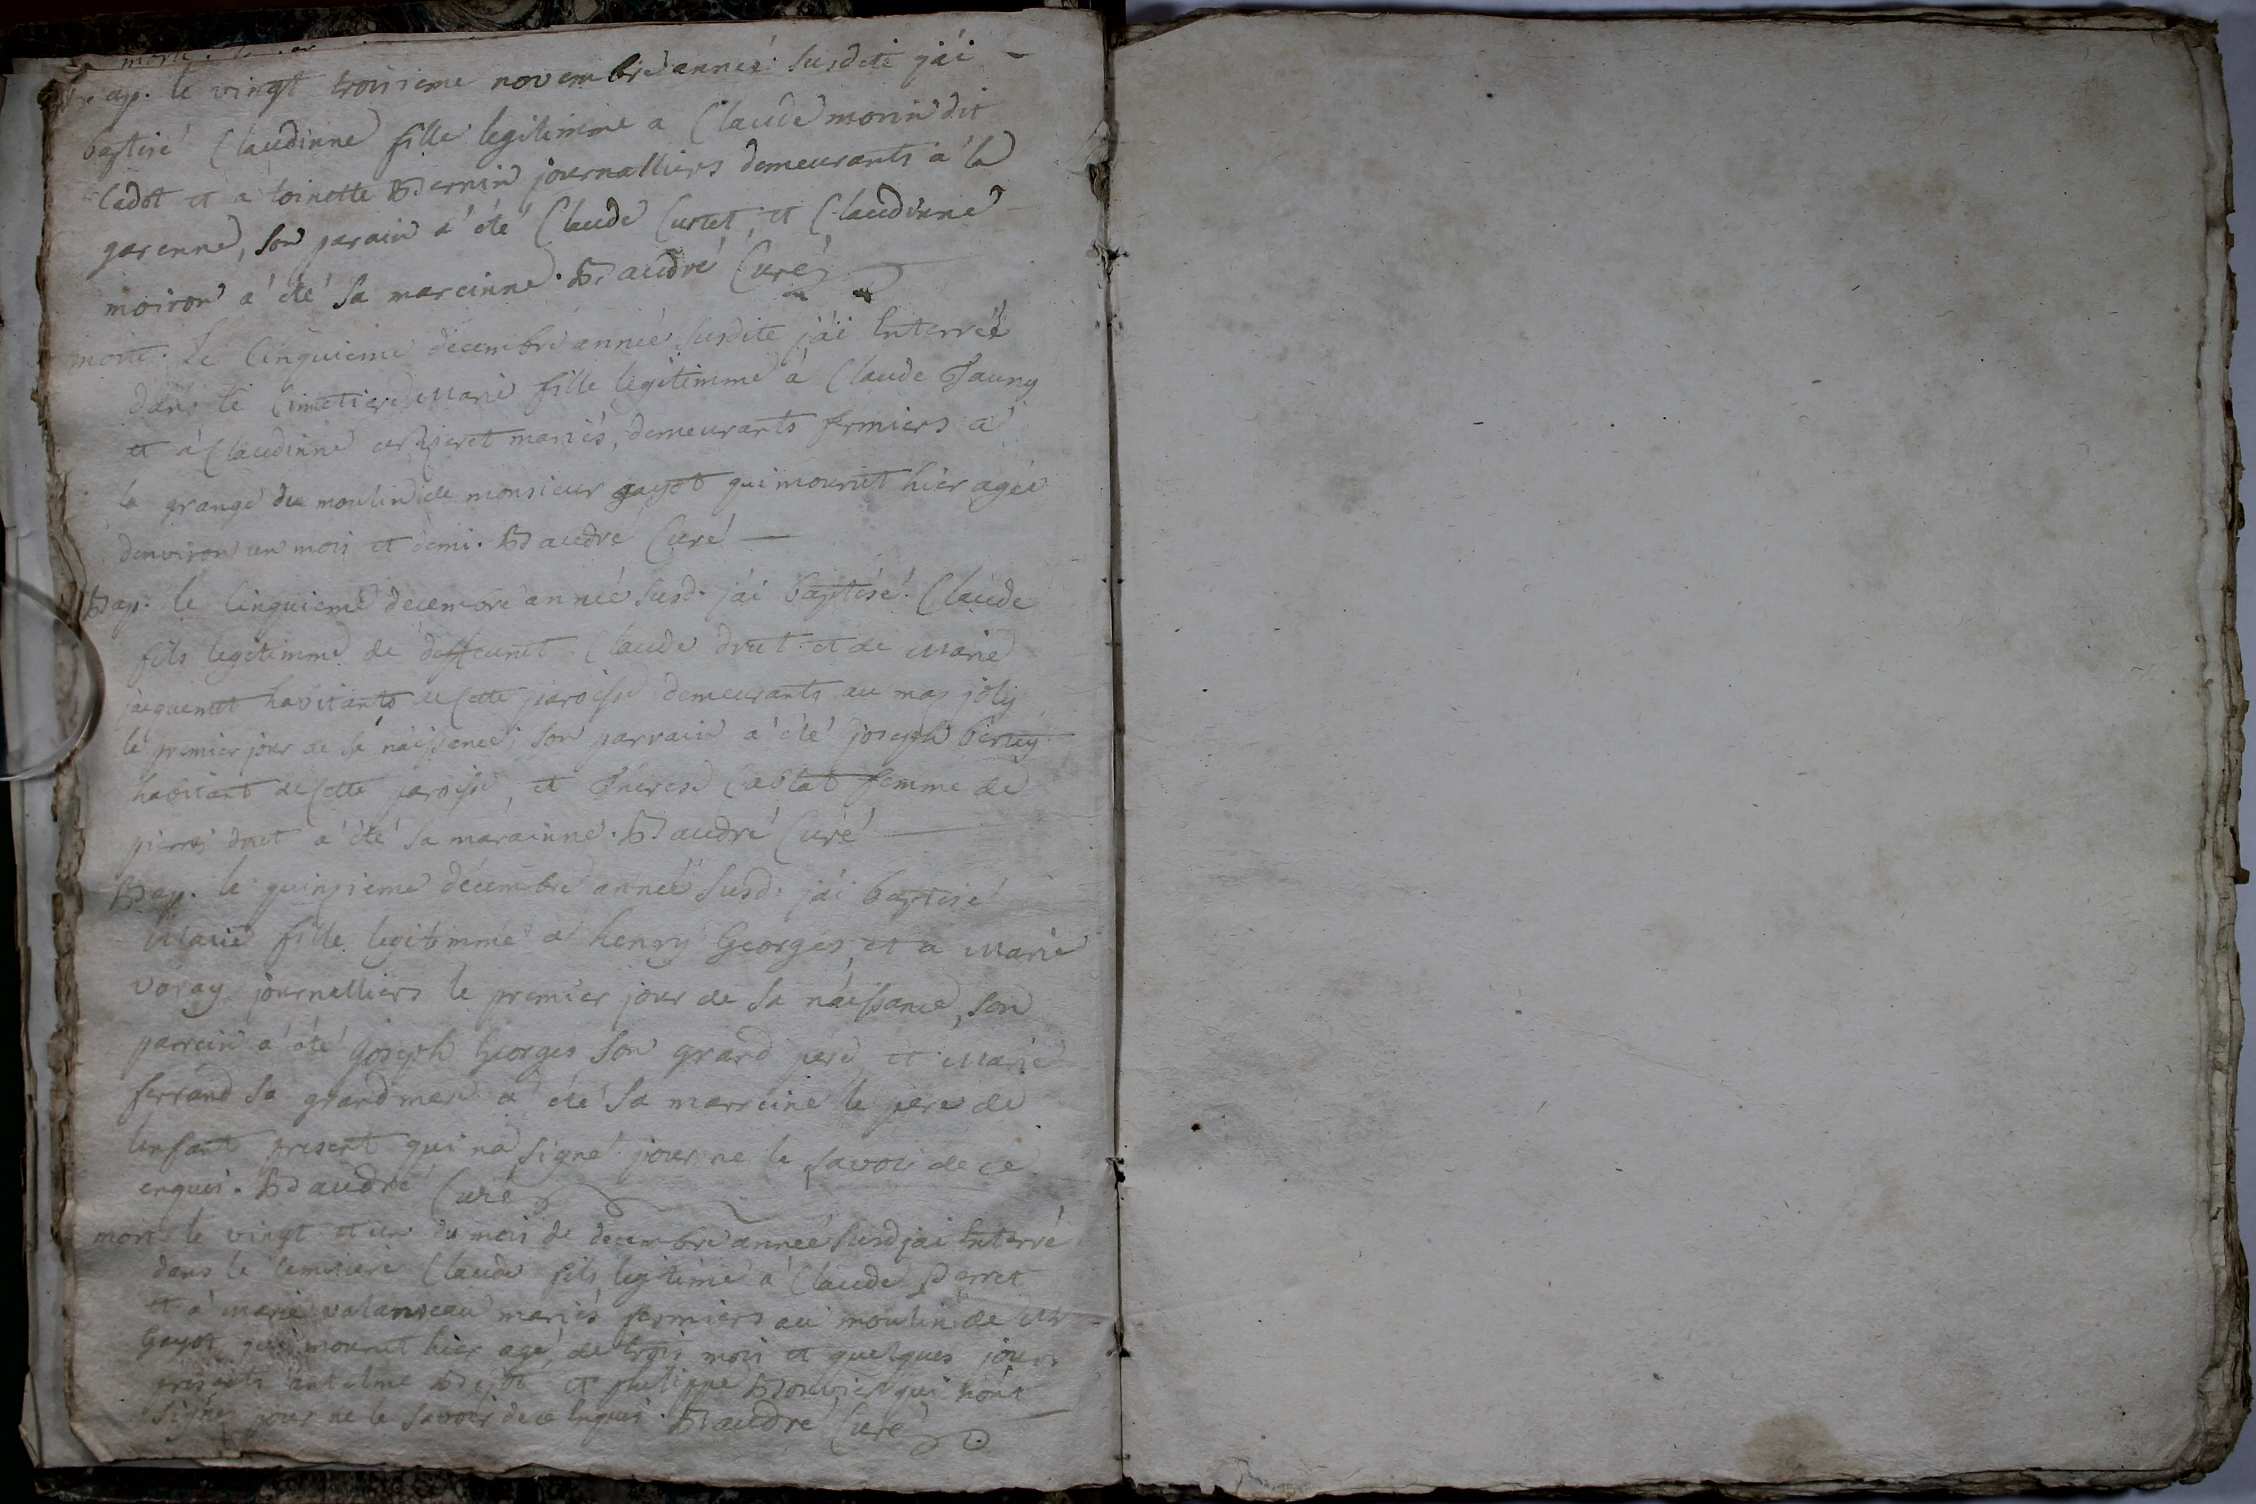 Bap. le vingt troisieme novembre année susdite j'ái
baptisé Claudinne fille legitimme a Claude morin dit
Cadot et a toinette Bernin journalliers demeurants a la
garenne, son parain a été Claude Curtet, et Claudinne
moiron a été sa mareinne. Baudré Curé
morte. Le Cinquieme decembre année susdite j'ái Enterréé
dans le Cimetiere Marie fille legitimme a Claude Jauny
et a Claudinne mariés, demeurants fermiers a
la grange du moulin de monsieur gayot qui mourut hier agée
denviron un mois et demi. Baudré Curé
Bap. le Cinquieme decembre année susd. j'ái baptisé Claude
fils legitimme de deffeunt Claude drut et de Marie
jaquemet habitants de Cette paroisse demeurants au mas joly
le premier jour de sa náissance, son parrain a été joseph
habitant de Cette paroisse, et Therese Castat femme de
pierre drut a été sa marainne. Baudré Curé
Bap. le quinzieme décembre année susd. j'ái baptisé
Marie fille legitimme a henry Georges, et a Marie
voray journalliers le premier jour de sa náissance, son
parrein a été Joseph Georges son grand pere et Marie
ferrand sa grand mere a été sa marreine le pere de
lenfant present qui na signé pour ne le savoir de ce
enquis. Baudré Curé
mort le vingt et un du mois de decembre année susd j'ai Enterré
dans le Cemitiere Claude fils legitime a Claude perret
et a marie valanseau mariés fermiers au moulin de Mr
Gayot qui mourut hier agé de trois mois et quelques jours
presents antelme et philippe Bouvier qui n'ont
signé pour ne le savoir de ce Enquis. Baudré Curé